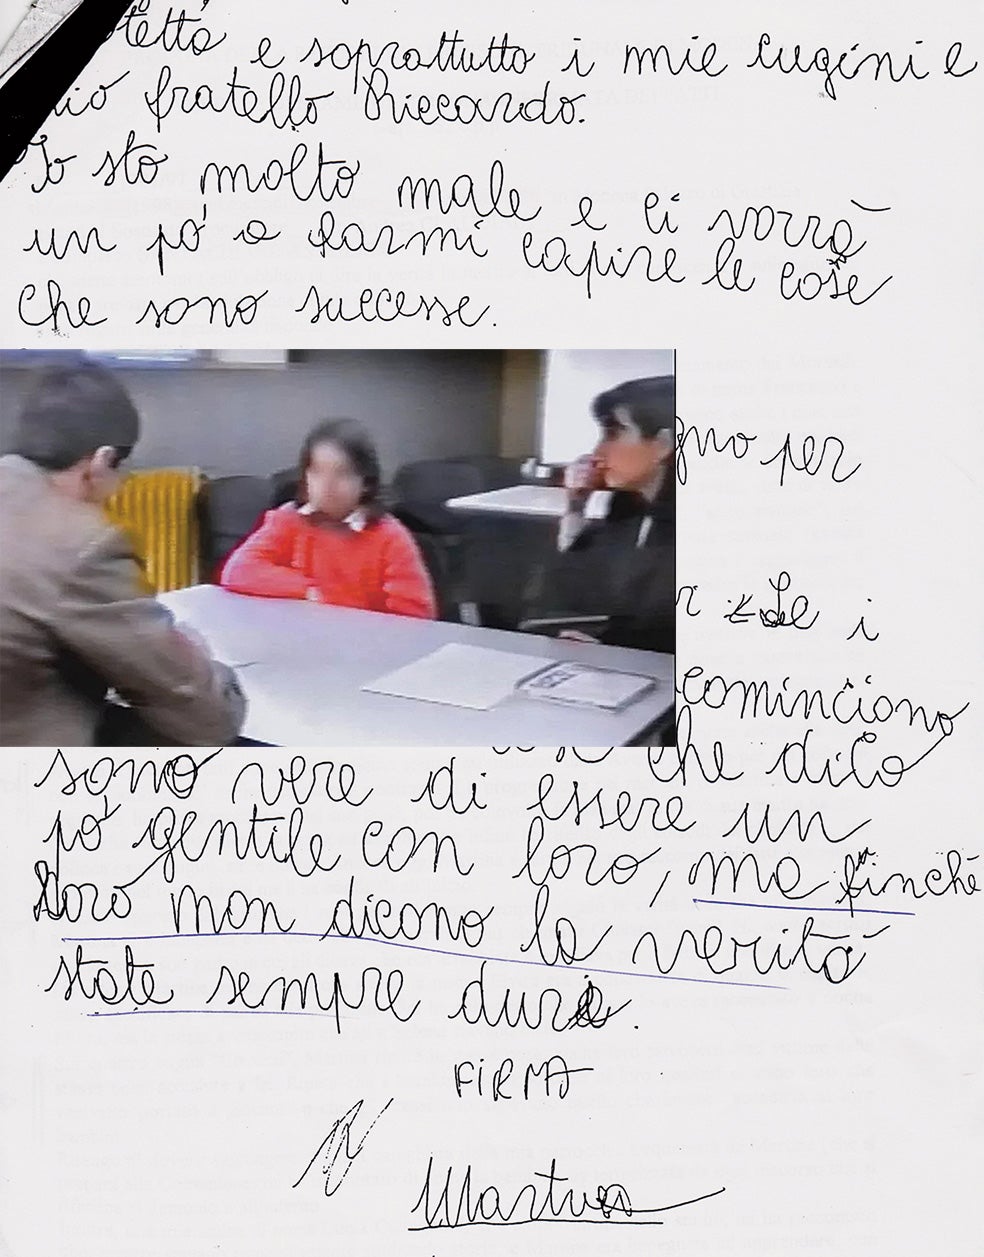 tetta e soprattutto i mie cugini e
mio fratello Riccardo.
Io sto molto male e ci vorrà
un pó a farmi capire le cose
che sono successe.
gno per
r Le i
cominciono
sono vere di che dico
pó gentile con essere un
loro, ma finchè
loro non dicono la verità
state sempre duri.
FIRMA